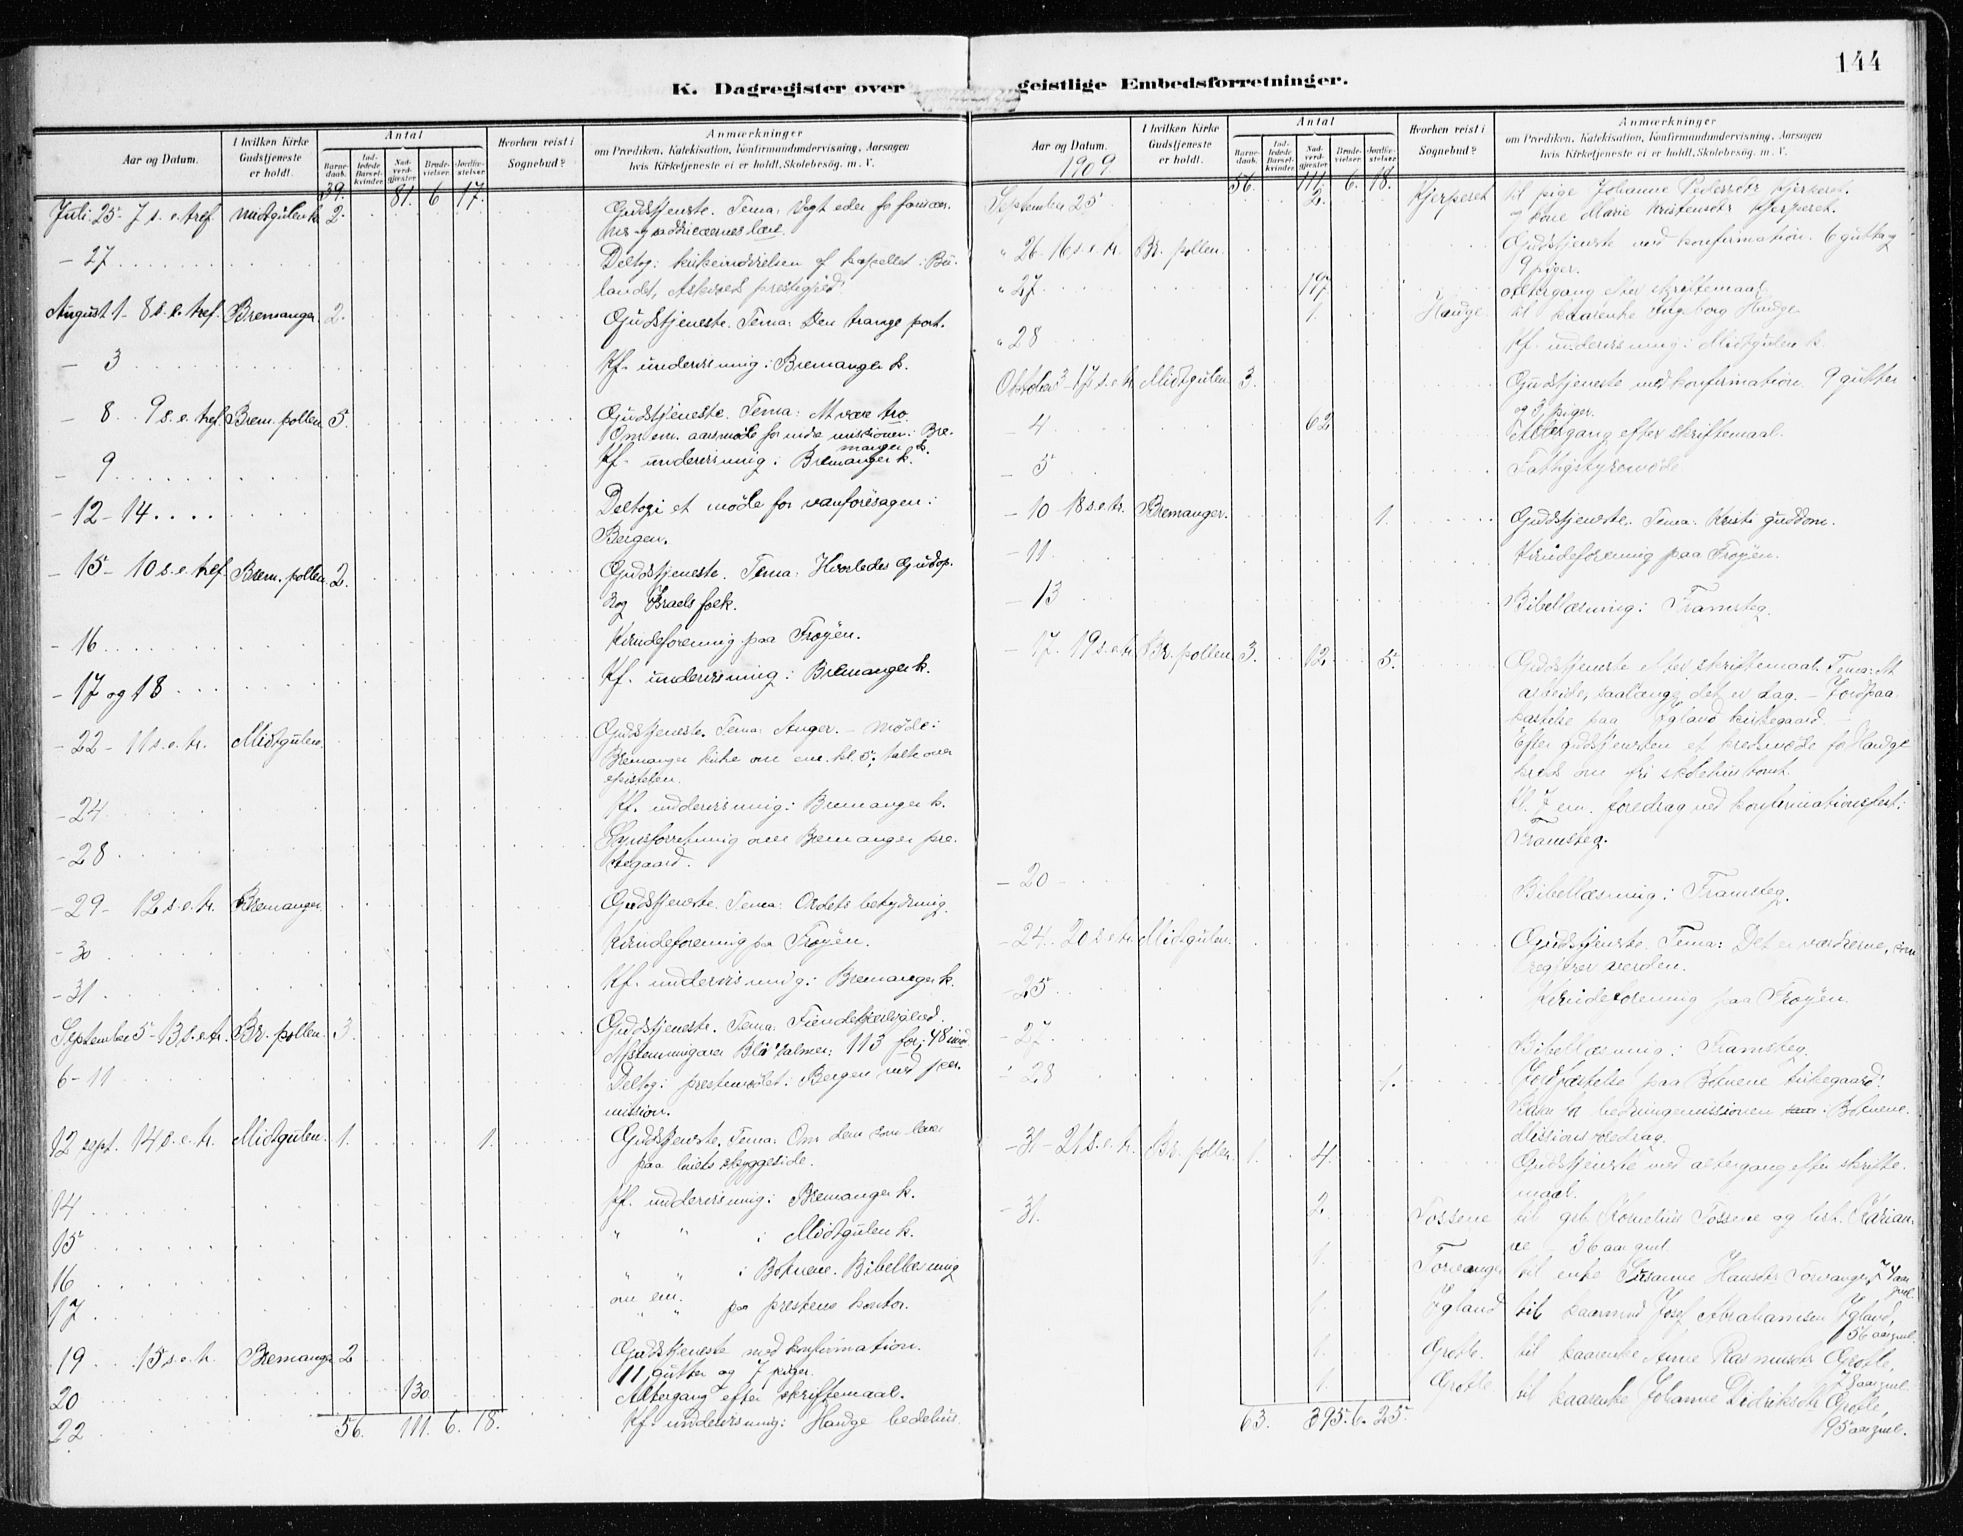 144
K. Dagregister over geistlige Embedsforretninger.
Aar og Datum.
I hvilken Kirke Gudstjeneste er holdt.
Antal
Barnedaab.
Indledede Barselkvinder.
Nadverdgjæster.
Brudevielser.
Jordfæstelser.
Hvorhen reist i Sognebud?
Anmærkninger
om Prædiken, Katekisation, Konfirmandundervisning, Aarsagen
hvis Kirketjeneste ei er holdt, Skolebesög. m. V.
39. 81. 6 17.
Juli 25- 7 s. e. tref. Midtgulen k. 2. Gudstjeneste. Tema: Vogt eder for farisæernes
og saddukæernes lære.
- 27 Deltog i kirkeindvielsen af kapellet i Bulandet,
Askvold prestegjeld
August 1- 8 s. e. tref. Bremanger 2. Gudstjeneste. Tema: Den trange port.
- 3 Kf. undervisning i Bremanger k.
- 8 9 s. e. tref. Brem. pollen 5. Gudstjeneste. Tema: At være tro
Om em. aarsmøde for indre missionen i Bremanger k.
- 9 Kf. undervisning i Bremanger k.
- 12-14 Deltog i et møde for vanføresagen i
Bergen.
- 15- 10 s. e. tref. Brem. pollen 2. Gudstjeneste. Tema: Hvorledes Gud opdrog
Israels folk.
- 16 Kvindeforening paa Frøyen.
- 17 og 18 Kf. undervisning i Bremanger k.
- 22- 11 s. e. tr. Midtgulen. Gudstjeneste. Tema: Anger. - Møde i
Bremanger kirke om em. kl. 5, talte over
epistelen.
- 24 Kf. undervisning i Bremanger k.
- 28 Synsforretning over Bremanger prestegaard.
- 29- 12 s. e. tr. Bremanger. Gudstjeneste. Tema: Ordets betydning.
- 30 Kvindeforening paa Frøyen.
- 31 Kf. undervisning i Bremanger k.
September 5- 13 s. e. tr. Br. pollen. 3. Gudstjeneste. Tema: Fiendekjærlighed.
Afstemning over Blix' salmer: 113 for, 48 imod
6-11 Deltog i prestemødet i Bergen med permission.
12 sept. 14 s. e. tr. Midtgulen. 1. 1. Gudstjeneste. Tema: Om dem som lever
paa livets skyggeside.
14 Kf. undervisning i Bremanger k.
15 " " i Midtgulen k.
16 " " i Botnene. Bibellæsning
om em.
17 " " paa prestens kontor.
19 15 s. e. tr. Bremanger 2 Gudstjeneste med konfirmation.
11 gutter og 7 piger.
20 130 Altergang efter skriftemaal.
22 Kf. undervisning i Hauge bedehus.
56. 111. 6. 18.
Aar og Datum.
1909
I hvilken Kirke Gudstjeneste er holdt.
Antal
Barnedaab.
Indledede Barselkvinder.
Nadverdgjæster.
Brudevielser.
Jordfæstelser.
Hvorhen reist i Sognebud?
Anmærkninger
om Prædiken, Katekisation, Konfirmandundervisning, Aarsagen
hvis Kirketjeneste ei er holdt, Skolebesög. m. V.
56. 111. 6. 18.
September 25 2. Kjerperet til pige Johanne Pedersdtr Kjerperet.
og kone Marie Kristensdtr Kjerperet.
" 26- 16 s. e. tr. Br. pollen. Gudstjeneste med konfirmation. 6 gutter og
9 piger.
" 27 Altergang efter skriftemaal
1 Hauge til kaarenke Ingeborg Hauge
" 28 Kf. undervisning i Midtgulen k.
Oktober 3- 17 s. e. tr Midtgulen 3. Gudstjeneste med konfirmation. 9 gutter
og 3 piger.
- 4 62 Altergang efter skriftemaal.
- 5 Fattigstyremøde
- 10 18 s. e. tr. Bremanger. 1. Gudstjeneste. Tema: Kristi guddom.
- 11 Kvindeforening paa Frøyen.
- 13 Bibellæsning i Framsteg.
- 17. 19 s. e. tr. Br. pollen 3. 12. 5. Gudstjeneste efter skriftemaal. Tema: At
arbeide, saalænge det er dag. - Jordpaakastelse
paa Igland kirkegaard. -
Efter gudstjenesten et kredsmøde for Hauge
kreds om fri skolehustomt.
Kl. 7 em. foredrag ved konfirmationsfest i
Framsteg.
- 20 - Bibellæsning i Framsteg.
- 24. 20 s e tr Midtgulen. Gudstjeneste. Tema: Det er værdierne, som
regjerer verden.
- 25 Kvindeforening paa Frøyen
- 27. Bibellæsning i Framsteg.
- 28 1. Jordfæstelse paa Botnene kirkegaard.
Basar for hedningemissionen i Botnene.
Missionsforedrag.
- 31- 21 s. e. tr. Br. pollen 1. 4. Gudstjeneste med altergang efter skriftemaal.
- 31. 2. Fossene til gbr. Kornelius Fossene og 36 aar gml.
1. Torvanger til enke Susanne Hansdtr Torvanger, 74 aar
gml.
1. Igland til kaarmand Josef Abrahamsen Igland,
56 aar gml.
1. Grotle. til kaarenke Anne Rasmusdtr Grotle,
78 aar gml.
1. Grotle til kaarenke Johanne Didriksdtr Grotle,
95 aar gml.
63. 395. 6. 25.